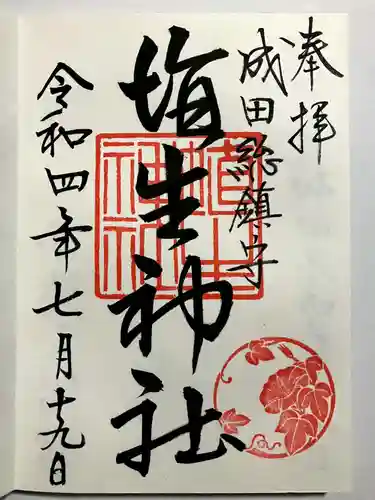 奉拝
成田総鎮守
埴生神社
令和四年七月十九日